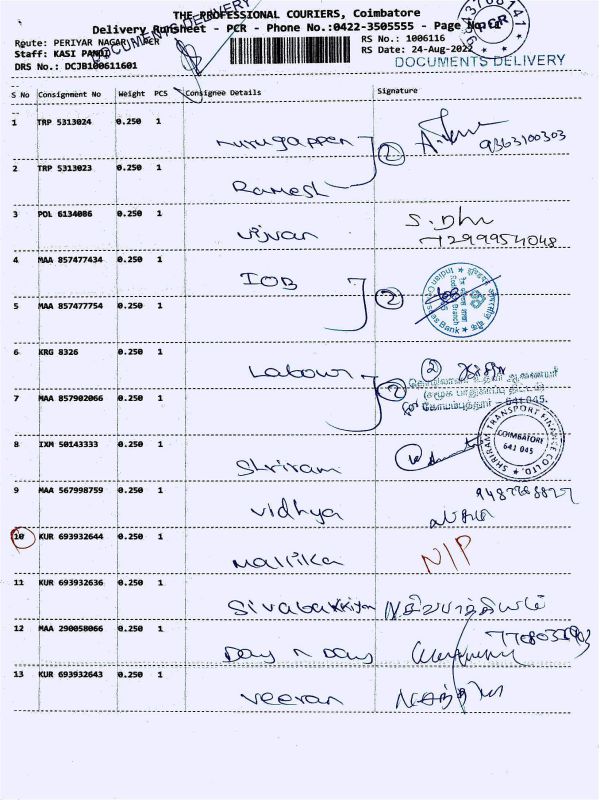 THE PROFESSIONAL COURIERS, Coimbatore
Delivery RunSheet - PCR - Phone No.:0422-3505555 - Page No.:1
Route: PERIYAR NAGAR
Staff: KASI PANDI
DRS No.: DCJB100611601
RS No.: 1006116
RS Date: 24-Aug-2022
DOCUMENTS DELIVERY
DOCUMENTS DELIVERY
S No Consignment No Weight PCS Consignee Details Signature
1 TRP 5313024 0.250 1 Murugappen 2 9363100303
2 TRP 5313023 0.250 1 Ramesh
3 POL 6134086 0.250 1 S. Dhu
7299954048
4 MAA 857477434 0.250 1 IOB 2 Indian Overseas Bank
5 MAA 857477754 0.250 1
6 KRG 8326 0.250 1 Labour 2 2
7 MAA 857902066 0.250 1 கோயம்புத்தூர் - 641 045.
8 IXM 50143333 0.250 1 Shriram SHRIRAM TRANSPORT FINANCE CO. LTD. COIMBATORE 641 045
9 MAA 567998759 0.250 1 Vidhya
10 KUR 693932644 0.250 1 Mallika N/P
11 KUR 693932636 0.250 1 Sivabakkiyam
12 MAA 290058066 0.250 1 Day n Day
13 KUR 693932643 0.250 1 Veeran